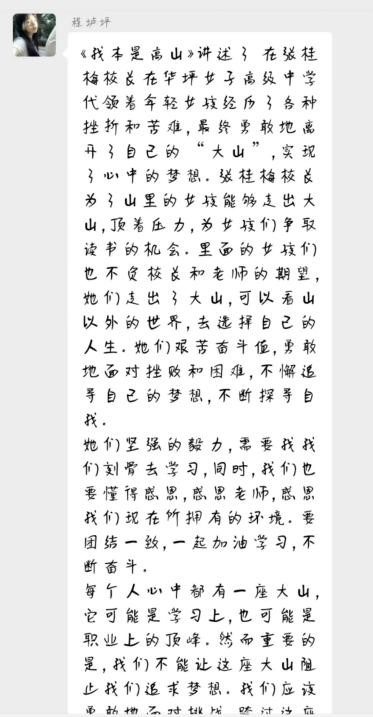 程坤坪
《我本是高山》讲述了在张桂
梅校长在华坪女子高级中学
代领着年轻女孩经历了各种
挫折和苦难,最终勇敢地离
开了自己的“大山”,实现
了心中的梦想.张桂梅校长
为了山里的女孩能够走出大
山,顶着压力,为女孩们争取
读书的机会.里面的女孩们
也不负校长和老师的期望,
她们走出了大山,可以看山
以外的世界,去选择自己的
人生.她们艰苦奋斗值,勇敢
地面对挫败和困难,不懈追
寻自己的梦想,不断探寻自
我.
她们坚强的毅力,需要我我
们刻骨去学习,同时,我们也
要懂得感恩,感恩老师,感恩
我们现在所拥有的环境.要
团结一致,一起加油学习,不
断奋斗.
每个人心中都有一座大山,
它可能是学习上,也可能是
职业上的顶峰.然而重要的
是,我们不能让这座大山阻
止我们追求梦想.我们应该
勇敢地面对挑战,跨过这座